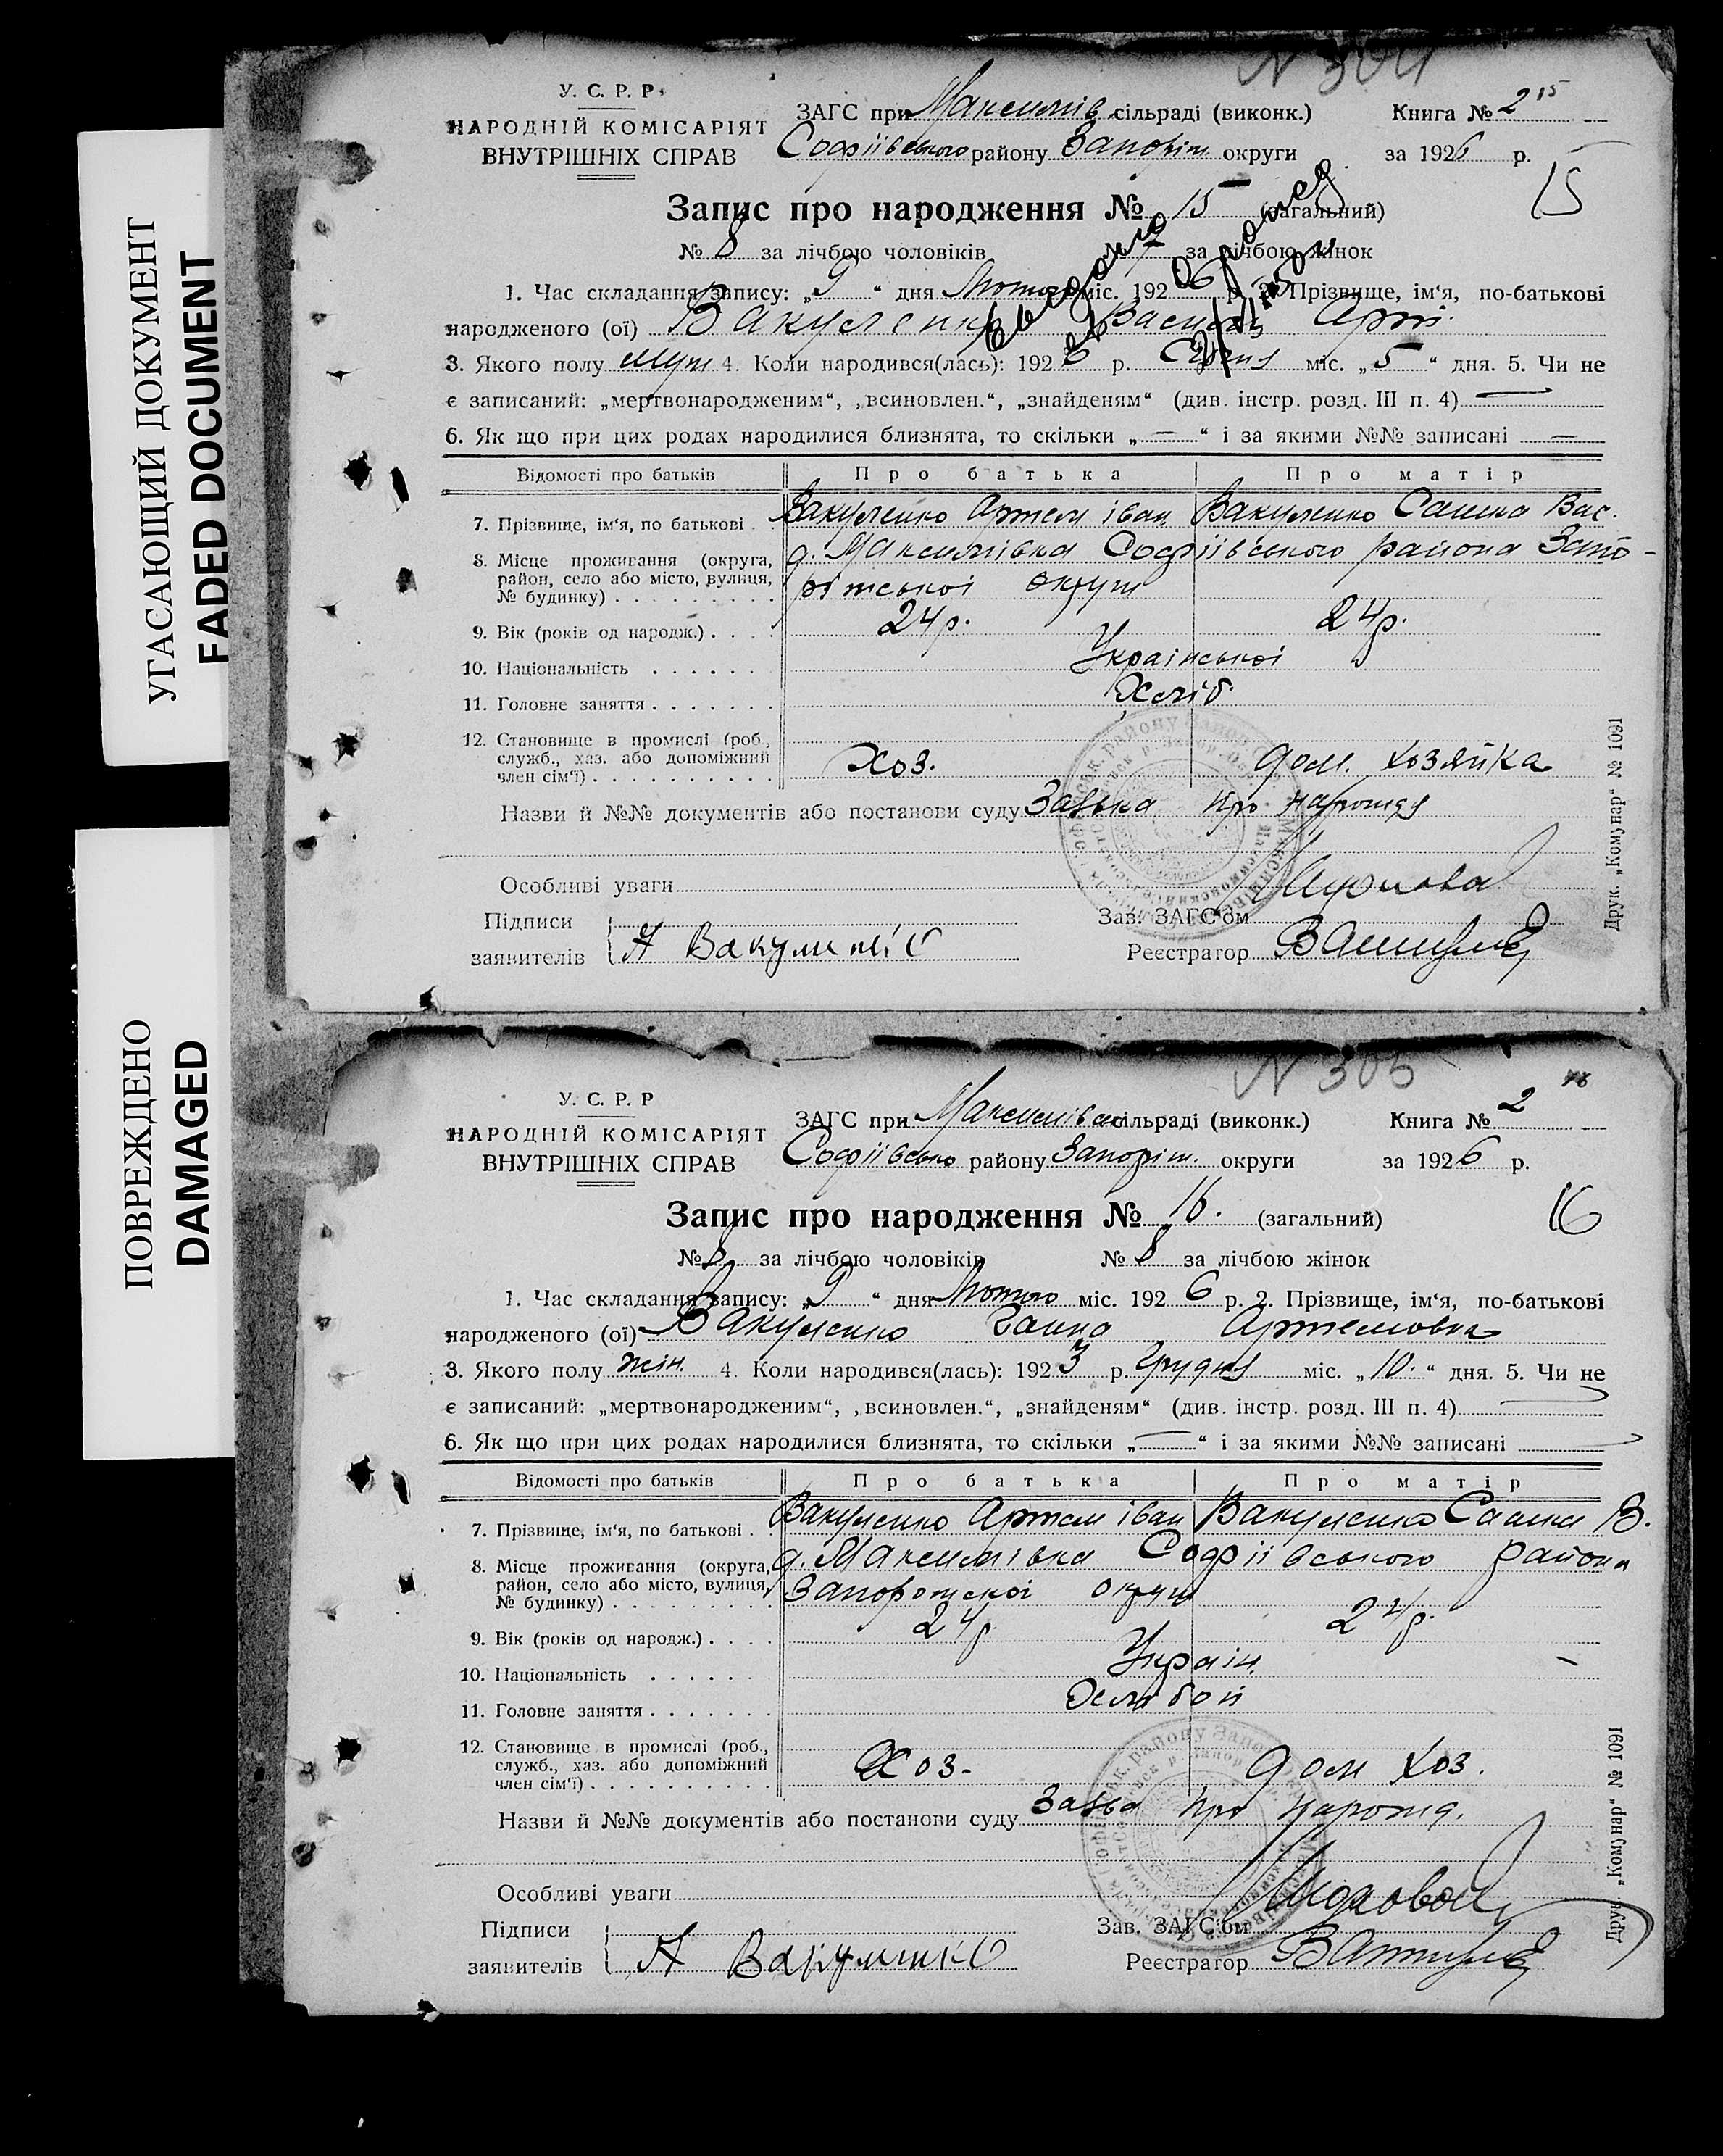 УГАСАЮЩИЙ ДОКУМЕНТ
FADED DOCUMENT
ПОВРЕЖДЕНО
DAMAGED
N 304
У. С. Р. Р.
НАРОДНІЙ КОМІСАРІЯТ
ВНУТРІШНІХ СПРАВ
ЗАГС при Максимів. сільраді (виконк.)
Софіївського району Запоріж округи
Книга № 2 15
за 1926 р.
15
Запис про народження № 15 (загальний)
№ 8 за лічбою чоловіків № 7 за лічбою жінок
1. Час складання запису: „ 9 “ дня Лютого міс. 1926 р. 2. Прізвище, ім‘я, по-батькові
народженого (ої) Вакуленко Василь Арт.
3. Якого полу муж 4. Коли народився(лась): 1926 р. Січня міс. „ 5 “ дня. 5. Чи не
є записаний: „мертвонародженим“, „всиновлен.“, „знайденям“ (див. інстр. розд. III п. 4) —
6. Як що при цих родах народилися близнята, то скільки „ — “ і за якими №№ записані —
Відомості про батьків Про батька Про матір
7. Прізвище, ім‘я, по батькові . Вакуленко Артем іван Вакуленко Саша Вас.
8. Місце проживання (округа, район, село або місто, вулиця, № будинку) . . . . . . . . . д. Максимівка Софіївського района Запо-
ріжської округи
9. Вік (років од народж.) . . . . 24р. 24р.
10. Національність . . . . . . Української
11. Головне заняття . . . . . . . Хліб.
12. Становище в промислі (роб., служб., хаз. або допоміжний член сім‘ї) . . . . . . . . . . Хоз. дом. хозяйка
Назви й №№ документів або постанови суду Заявка про народж
Особливі уваги
Підписи
заявителів А Вакуленко
Зав. ЗАГС‘ом
Реєстратор
Друк. „Комунар“ № 1091
N 305
У. С. Р. Р
НАРОДНІЙ КОМІСАРІЯТ
ВНУТРІШНІХ СПРАВ
ЗАГС при Максимівск сільраді (виконк.)
Софіївсько району Запоріж. округи
Книга № 2 16
за 1926 р.
16
Запис про народження № 16. (загальний)
№ 8 за лічбою чоловіків № 8 за лічбою жінок
1. Час складання запису: „ 9 “ дня Лютого міс. 1926 р. 2. Прізвище, ім‘я, по-батькові
народженого (ої) Вакуленко Ганна Артемовна
3. Якого полу жін. 4. Коли народився(лась): 1923 р. Грудня міс. „ 10. “ дня. 5. Чи не
є записаний: „мертвонародженим“, „всиновлен.“, „знайденям“ (див. інстр. розд. III п. 4)
6. Як що при цих родах народилися близнята, то скільки „ — “ і за якими №№ записані
Відомості про батьків Про батька Про матір
7. Прізвище, ім‘я, по батькові . Вакуленко Артем іван Вакуленко Сашка В.
8. Місце проживання (округа, район, село або місто, вулиця, № будинку) . . . . . . . . . д. Максимівка Софіївського района
Запорожскої округи
9. Вік (років од народж.) . . . . 24р 24р.
10. Національність . . . . . . Україн. –
11. Головне заняття . . . . . . .
12. Становище в промислі (роб., служб., хаз. або допоміжний член сім‘ї) . . . . . . . . . . Хоз. дом хоз.
Назви й №№ документів або постанови суду Заява про народжд.
Особливі уваги
Підписи
заявителів А Вакуленко
Зав. ЗАГС‘ом
Реєстратор
Друк. „Комунар“ № 1091